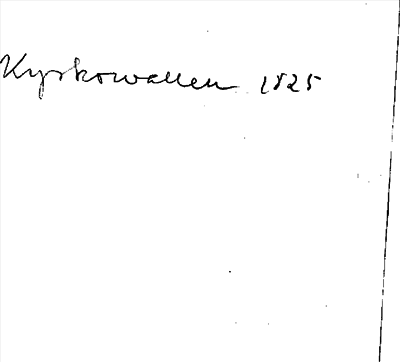 Kyrkowallen 1825